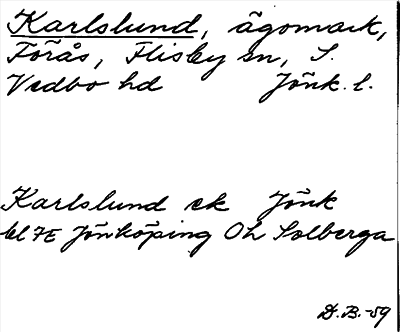 Karlslund, ägomark,
Förås, Flisby sn, S.
Vedbo hd Jönk. l.
Karlslund ek Jönk
bl 7E Jönköping Oh Solberga
D.B.-59